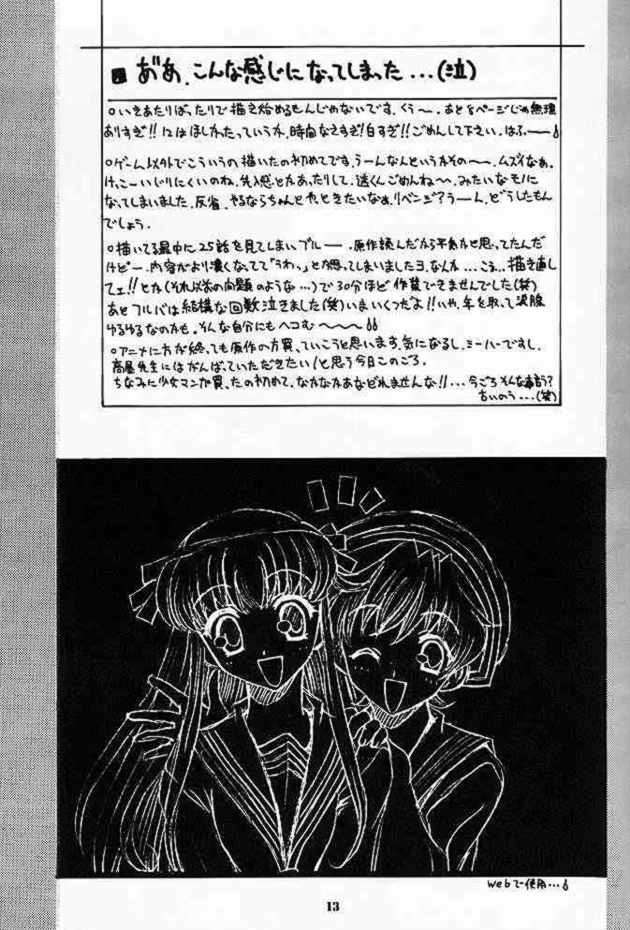 あぁ、こんな感じになってしまった...(泣)
○いきあたりばったりで描き始めるもんじゃないです。くぅ〜。あと8ページじゃ無理
ありすぎ!!12はほしかったっていうか、時間なさすぎ!白すぎ!!ごめんして下さい。はふぅー
○ゲーム以外でこういうの描いたの初めてです。うーんなんというかその〜〜。ムズイなぁ。
けっこーいじりにくいのね。先入感とかあったりして。透くんごめんね〜。みたいなモノに
なってしまいました。反省。やるならちゃんとやっときたいなぁ。リベンジ?うーん、どうしたもん
でしょう。
○描いてる最中に25話を見てしまいブルー。原作読んだから平気かと思ってたんだ
けどー。内容がより濃くなってて「うわっ」とか思ってしまいましたヨ。なんか...こう...描き直し
てェ!!とか(それ以前の問題のような...)で30分ほど作業できませんでした(笑)
あとフルバは結構な回数泣きました(笑)いまいくつだよ!!いや、年を取って涙腺
ゆるゆるなのかも。そんな自分にもヘコむ〜〜〜
○アニメに方が終っても原作の方買っていこうと思います。気になるし。ミーハーですし。
高屋先生にはがんばっていただきたい!と思う今日このごろ。
ちなみに少女マンガ買ったの初めて。なかなかあなどれませんな!!...今ごろそんな事言う?
...(笑)
webで使用...
13